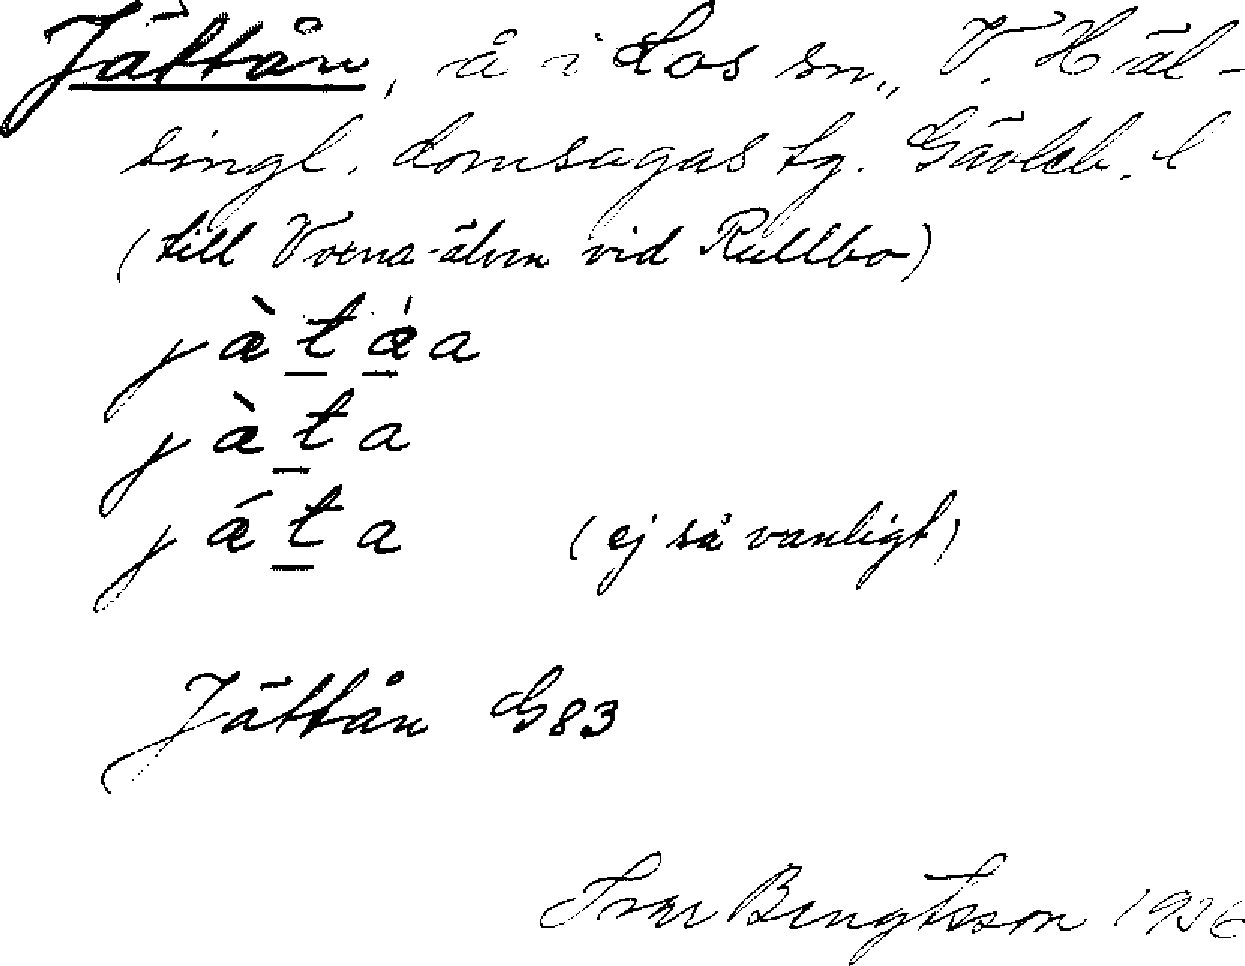 Jättån, å i Los sn., V. Häl-
singl. domsagas tg. Gävleb. l
(till Voxna-älven vid Rullbo)
jæ̀t̲ǽ̲a
jæ̀t̲a
jǽt̲a (ej så vanligt)
Jättån G83
Ivar Bengtsson 1926